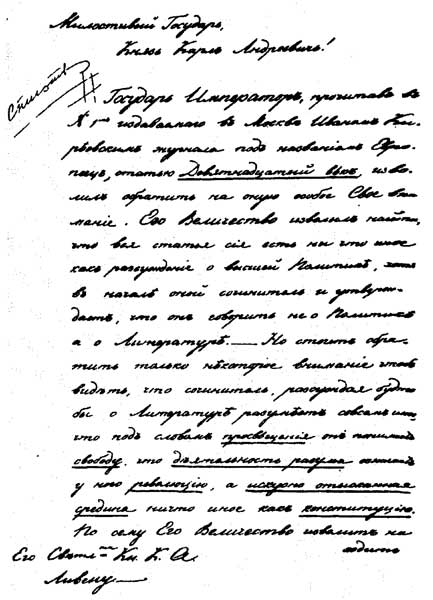 Милостивый Государь,
Князь Карлъ Андреевичъ!
Государь Императоръ, прочитавъ въ
№ 1 издаваемаго въ Москвѣ Иваномъ Кирѣевскимъ журнала подъ названіемъ Европеецъ, статью Девятнадцатый вѣкъ, изволилъ обратить на оную особое Свое вниманіе. Его Величество изволилъ найти,
что вся статья сія есть ни что иное
какъ разсужденіе о высшей Политикѣ, хотя
въ началѣ оной сочинитель и утверждаетъ, что онъ говоритъ не о Политикѣ
а о Литературѣ. — Но стоитъ обратить только нѣкоторое вниманіе чтобъ
видѣть, что сочинитель, разсуждая будто
бы о Литературѣ разумѣетъ совсѣмъ иное
что подъ словомъ просвѣщеніе онъ понимаетъ
свободу, что дѣятельность разума означаетъ
у него революцію, а искусно отысканная
средина ничто иное какъ конституцію.
По сему Его Величество изволитъ находить
Его Свѣтл. Кн. К. А.
Ливену —